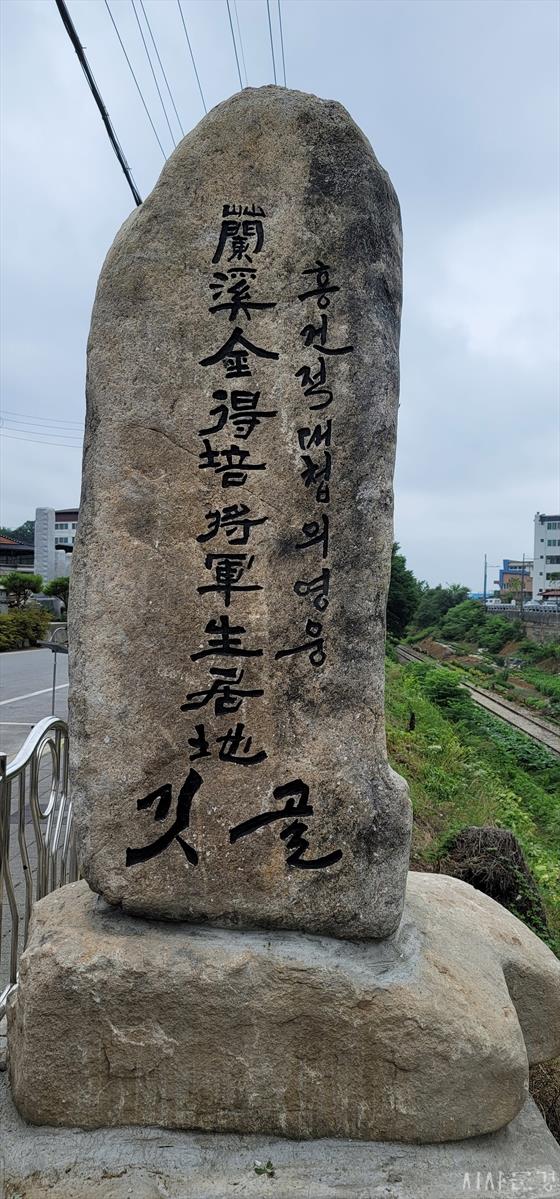 홍건적 대첩의 영웅
蘭溪金得培將軍生居地
깃골